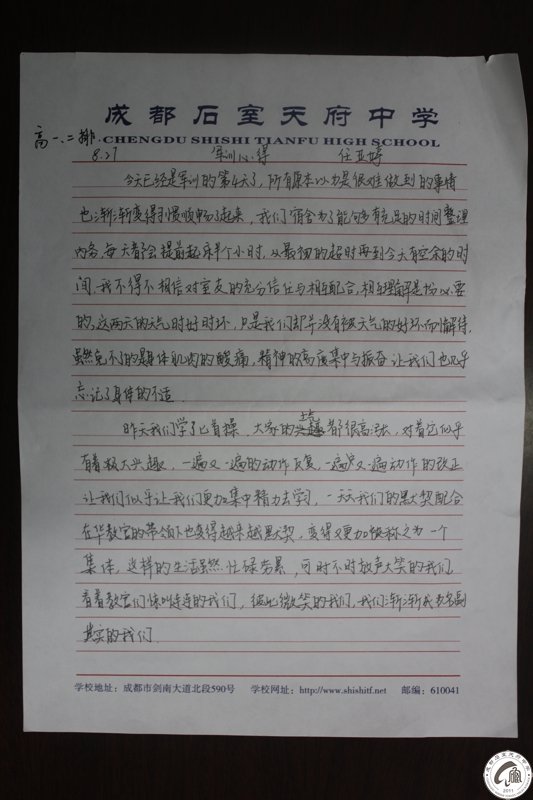 成都石室天府中学
CHENGDU SHISHI TIANFU HIGH SCHOOL
高一、二排.
8.27 军训心得 任亚婷
今天已经是军训的第4天了，所有原本以为是很难做到的事情
也渐渐变得习惯顺畅了起来，我们宿舍为了能够有充足的时间整理
内务，每天都会提前起床半个小时，从最初的超时再到今天有空余的时
间，我不得不相信对室友的充分信任与相互配合，相互理解是均必要
的，这两天的天气时好时坏，只是我们却并没有被天气的好坏而懈怠，
虽然免不了的是身体肌肉的酸痛，精神的高度集中与振奋让我们也几乎
忘记了身体的不适.
昨天我们学了匕首操，大家的士气都很高涨，对着它似乎
有着极大兴趣，一遍又一遍的动作反复，一遍又一遍动作的改正
让我们似乎让我们更加集中精力去学习，一天天我们的默契配合
在华教官的带领下也变得越来越默契，变得更加快称之为一个
集体，这样的生活虽然忙碌劳累，可时不时放声大笑的我们，
看着教官们惊叫连连的我们，彼此微笑的我们，我们渐渐成为名副
其实的我们.
学校地址：成都市剑南大道北段590号 学校网址：http://www.shishitf.net 邮编：610041
2011